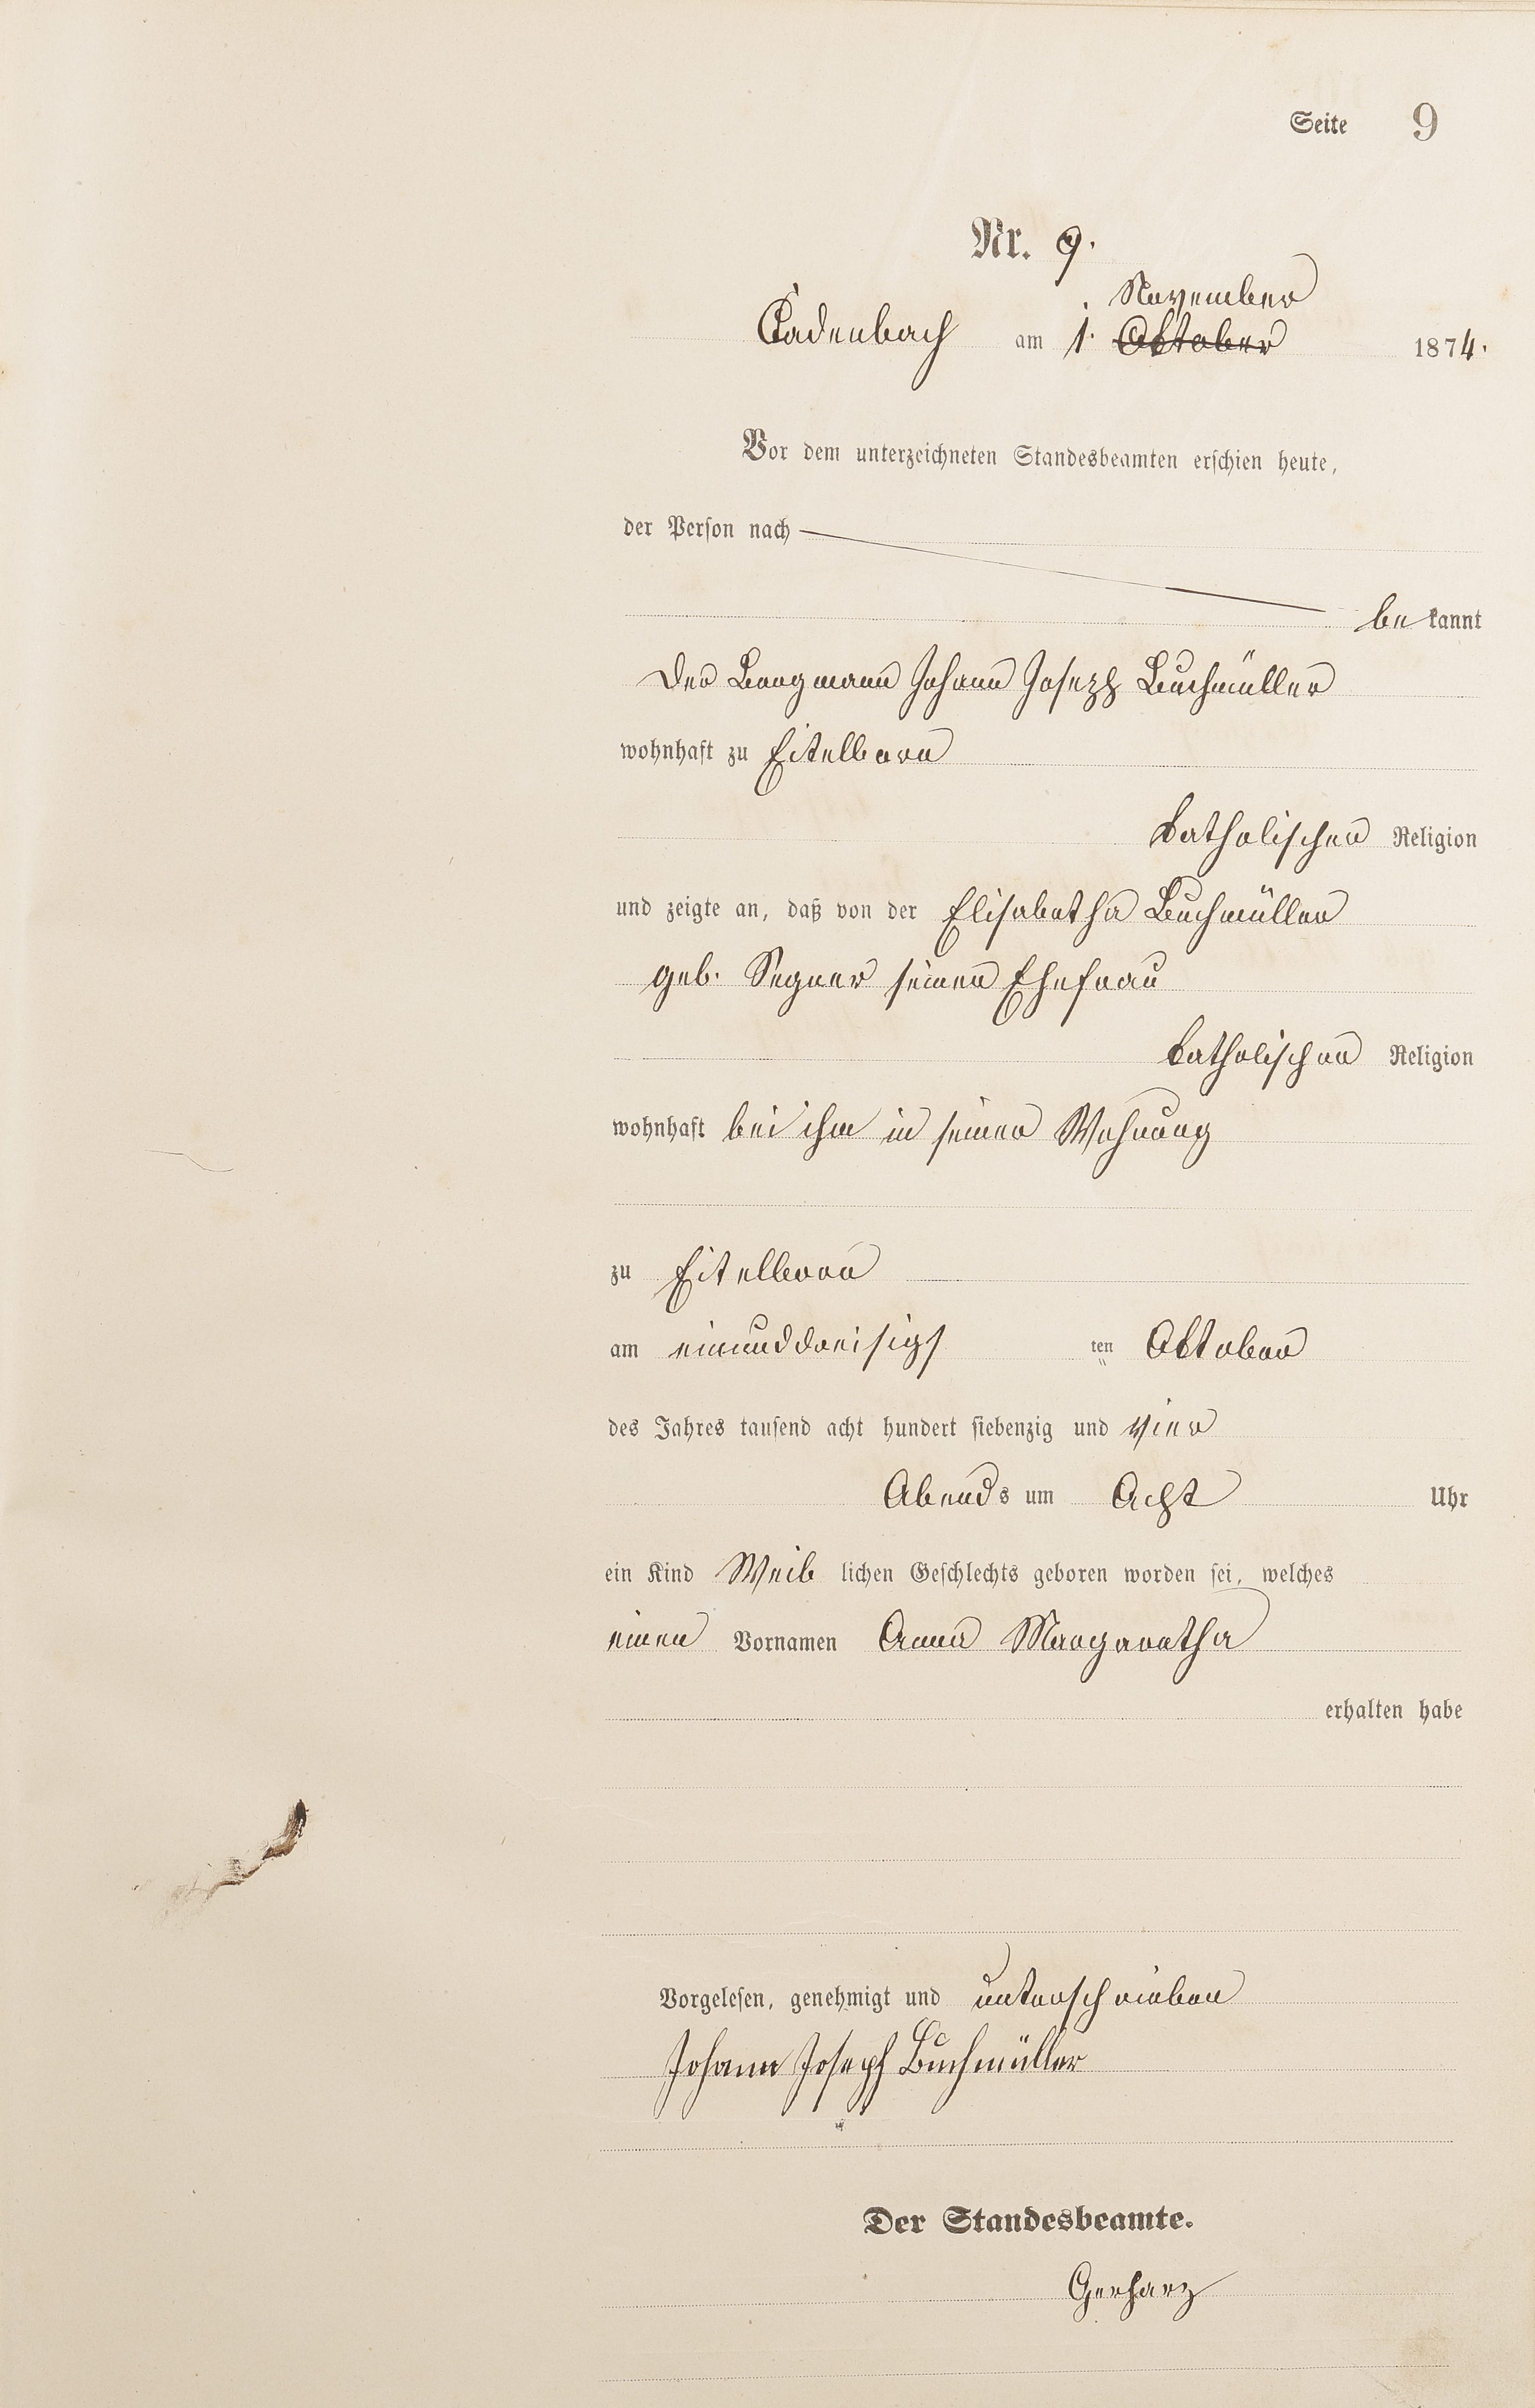 Seite 9
Nr. 9.
November
Cadenbach am 1. Oktober 1874.
Vor dem unterzeichneten Standesbeamten erschien heute,
der Person nach
bekannt
der Bergmann Johann Joseph Buchmüller
wohnhaft zu Eitelborn
katholischer Religion
und zeigte an, daß von der Elisabetha Buchmüller
geb. Segner seiner Ehefrau
katholischer Religion
wohnhaft bei ihm in seiner Wohnung
zu Eitelborn
am einunddreisigs ten Oktober
des Jahres tausend acht hundert siebenzig und vier
Abends um Acht Uhr
ein Kind Weiblichen Geschlechts geboren worden sei, welches
einen Vornamen Anna Margaretha
erhalten habe
Vorgelesen, genehmigt und unterschrieben
Johann Joseph Buchmüller
Der Standesbeamte.
Gerharz